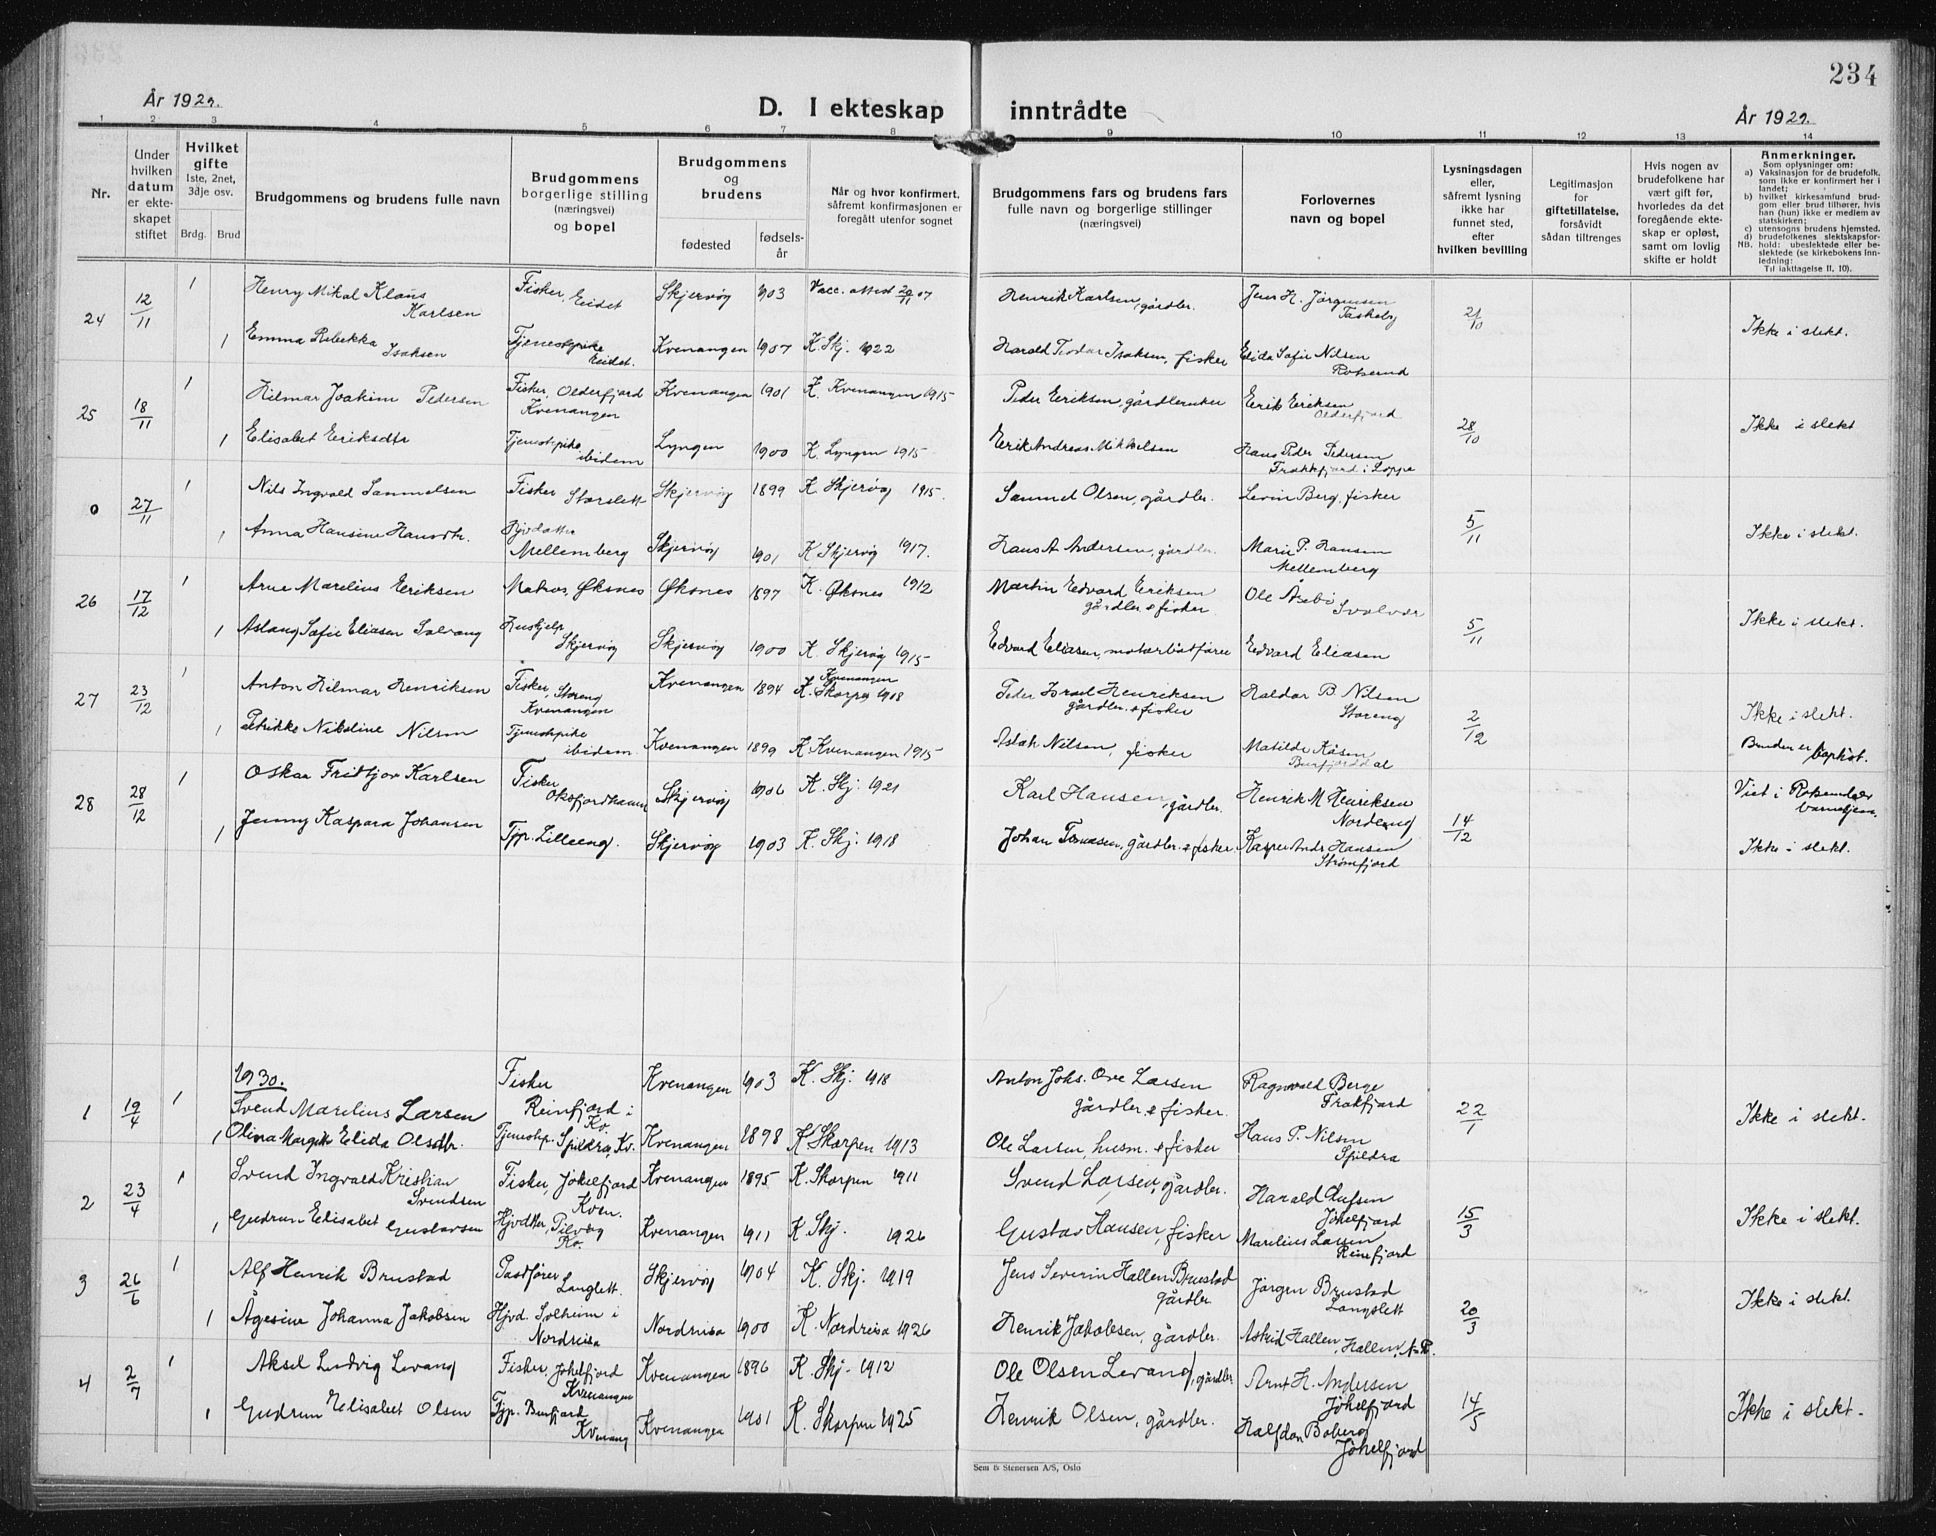 234
År 1929.
D. I ekteskap inntrådte
År 1929.
1 2 3 4 5 6 7 8 9 10 11 12 13 14
Nr.
Under hvilken datum er ekteskapet stiftet
Hvilket gifte
1ste, 2net, 3dje osv.
Brdg. Brud
Brudgommens og brudens fulle navn
Brudgommens borgerlige stilling (næringsvei) og bopel
Brudgommens og brudens
fødested
fødselsår
Når og hvor konfirmert, såfremt konfirmasjonen er foregått utenfor sognet
Brudgommens fars og brudens fars
fulle navn og borgerlige stillinger
(næringsvei)
Forlovernes navn og bopel
Lysningsdagen eller, såfremt lysning ikke har funnet sted, efter hvilken bevilling
Legitimasjon for giftetillatelse, forsåvidt sådan tiltrenges
Hvis nogen av brudefolkene har vært gift før, hvorledes da det foregående ekteskap er opløst, samt om lovlig skifte er holdt
Anmerkninger.
Som oplysninger om:
a) Vaksinasjon for de brudefolk, som ikke er konfirmert her i landet;
b) hvilket kirkesamfund brudgom eller brud tilhører, hvis han (hun) ikke er medlem av statskirken;
c) utensogns brudens hjemsted.
d) brudefolkenes slektskapsforhold: ubeslektede eller beslektede (se kirkebokens innledning:
NB.
Til iakttagelse II, 10).
24 12/11 1 Henry Mikal Klaus Karlsen Fisker, Eidet Skjervøy 1903 Vacc. attest 20/11 07 Henrik Karlsen, gårdbr. Jens H. Jørgensen 21/10 Ikke i slekt.
1 Emma Rebekka Isaksen Tjenestpike Eidet. Kvenangen 1907 K. Skj. 1922 Harald Teodor Isaksen, fisker Elida Sofie Nilsen Rotsund
25 18/11 1 Hilmar Joakim Pedersen Fisker, Olderfjord Kvenangen Kvenangen 1901 K. Kvenangen 1915 Peder Eriksen, gårdbruker Erik Eriksen Olderfjord 28/10 Ikke i slekt
1 Elisabet Eriksdtr Tjenestpike ibidem Lyngen 1900 K. Lyngen 1915 Erik Andreas Mikkelsen Hans Peder Pedersen Frakkfjord i Loppa
0 27/11 1 Nils Ingvald Samuelsen Fisker Storslett Skjervøy 1899 K Skjervøy 1915. Samuel Olsen, gårdbr. Levin Berg, fisker 5/11 Ikke i slekt.
1 Anna Hansine Hansdtr. Hjvdatter Mellemberg Skjervøy 1901 K Skjervøy 1917. Hans A Andersen, gårdbr. Marie P. Hansen Mellemberg
26 17/12 1 Arne Marelius Eriksen Matros, Øksnes Øksnes 1897 K. Øksnes 1912 Martin Edvard Eriksen gårdbr. & fisker Ole Åsebø Svolvær 5/11 Ikke i slekt.
1 Aslaug Sofie Eliasen Solvang Hushjelp Skjervøy Skjervøy 1900 K. Skjervøy 1915 Edvard Eliasen, motorbåtfører Edvard Eliasen
27 23/12 1 Anton Hilmar Henriksen Fisker, Storeng Kvenangen Kvenangen 1894 Kvenangen K. Skorpa 1908 Peder Israel Henriksen gårdbr. & fisker Haldor B Nilsen Storeng 2/12 Ikke i slekt.
1 Petrikke Nikoline Nilsen Tjenestpike ibidem Kvenangen 1899 K. Kvenangen 1915 Aslak Nilsen, fisker Matilde Kåsen Burfjorddal Bruden er baptist.
28 28/12 1 Oskar Fridtjov Karlsen Fisker Oksfjordhamn Skjervøy 1906 K. Skj. 1921 Karl Hansen, gårdbr. Henrik M Henriksen Nordeng 14/12 Viet i
1 Jenny Kaspara Johansen Tjp. Lilleeng. Skjervøy 1903 K. Skj. 1918 Johan Tomasen, gårdbr. & fisker Kasper Andr Hansen Strømfjord Ikke i slekt.
1930.
1 19/4 1 Svend Marelius Larsen Fisker Reinfjord i Kv. Kvenangen 1903 K. Skj. 1918 Anton Johs. Ove Larsen gårdbr. & fisker. Ragnvald Berge Frakfjord 22/1 Ikke i slekt.
1 Olina Margit Elida Olsdtr. Tjenestp. Spildra, Kv. Kvenangen 1898 K Skorpen 1913 Ole Larsen, husm. & fisker Hans P. Nilsen Spildra
2 23/4 1 Svend Ingvald Kristian Svendsen Fisker, Jøkelfjord Kven. Kvenangen 1895 K. Skorpen 1911 Svend Larsen, gårdbr. Harald Olufsen Jøkelfjord 15/3 Ikke i slekt.
1 Gudrun Elisabet Gustavsen Hjvdtter, Kv. Kvenangen 1911 K Skj. 1926 Gustav Hansen, fisker Marelius Larsen Reinfjord
3 26/6 1 Alf Henrik Brustad Postfører Langslett. Skjervøy 1904 K. Skj. 1919 Jens Severin Hallen Brustad gårdbr. Jørgen Brustad Langslett 20/3 Ikke i slekt.
1 Ågesine Johanna Jakobsen Hjvd. Solheim i Nordreisa Nordreisa 1900 K. Nordreisa 1926 Henrik Jakobsen, gårdbr. Astrid Hallen, Hallen, N.R.
4 2/7 1 Aksel Ludvig Levang Fisker, Jøkelfjord Kvenangen Kvenangen 1896 K Skj. 1912 Ole Olsen Levang, gårdbr Arnt H. Andersen Jøkelfjord 14/5 Ikke i slekt.
1 Gudrun Elisabet Olsen Tjp. Burfjord Kvenang Kvenangen 1901 K. Skorpen 1925 Henrik Olsen, gårdbr. Halfdan Boberg Jøkelfjord
Sem & Stenersen A/S, Oslo